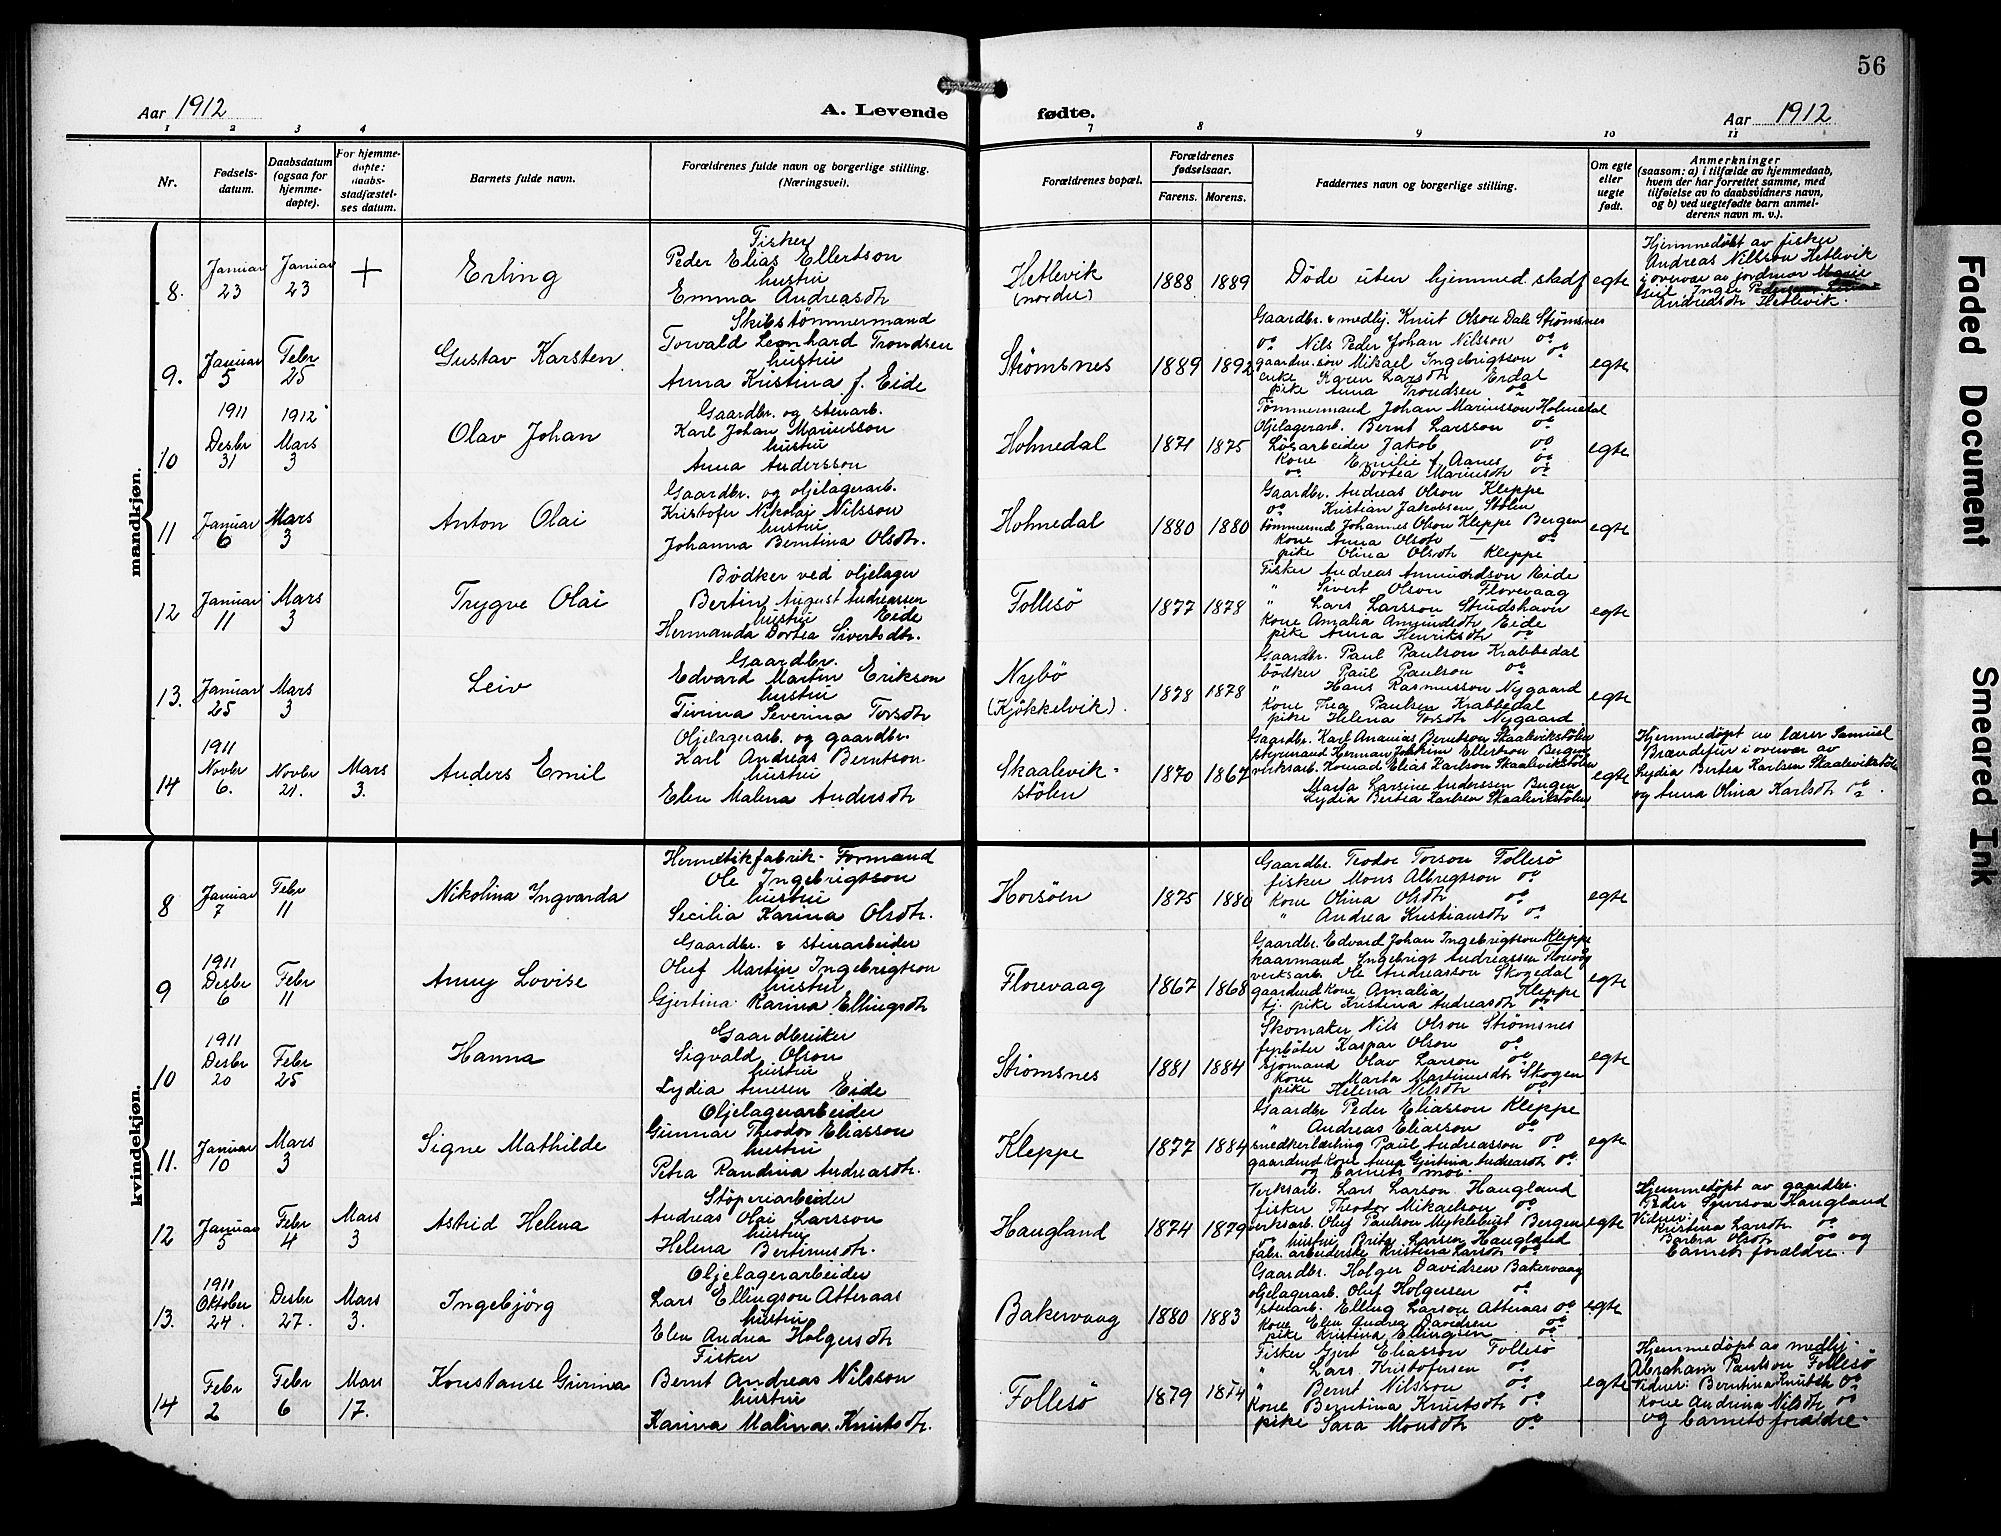 56
Aar 1912
A. Levende fødte.
Aar 1912
1 2 3 4 7 8 9 10 11
Nr.
Fødsels-
datum.
Daabsdatum
(ogsaa for
hjemme-
døpte).
For hjemme-
døpte:
daabs-
stadfæstel-
ses datum.
Barnets fulde navn.
Forældrenes fulde navn og borgerlige stilling.
(Næringsvei).
Forældrenes bopæl.
Forældrenes
fødselsaar.
Farens. Morens.
Faddernes navn og borgerlige stilling.
Om egte
eller
uegte
født.
Anmerkninger
(saasom: a) i tilfælde av hjemmedaab,
hvem der har forrettet samme, med
tilføielse av to daabsvidners navn,
og b) ved uegtefødte barn anmel-
derens navn m. v.).
mandkjøn.
8.
Januar
23
Januar
23
+
Erling
Fisker
Peder Elias Ellertson
hustru
Emma Andreasdtr
Hetlevik
(nordre)
1888 1889
Døde uten hjemmed. stadf
egte
Hjemmedøbt av fisker
Andreas Nilsson Hetlevik
i overvær av jordmor
Andreasdtr Hetlevik.
9.
Januar
5
Febr
25
Gustav Karsten
Skibstømmermand
Torvald Leonhard Trondsen
hustru
Anna Kristina f. Eide
Strømsnes
1889 1892
Gaardbr. & medhj. Knut Olson Dale Strømsnes
do Nils Peder Johan Nilsson do
gaardm. søn Mikael Ingebrigtson do
enke Karen Larsdtr Erdal
pike Anna Trondsen do
egte
10
1911
Desbr
31
1912
Mars
3
Olav Johan
Gaardbr. og stenarb.
Karl Johan Mariusson
hustru
Anna Andersson
Holmedal
1871 1875
Tømmermand Johan Mariusson Holmedal
Oljelagerarb. Bernt Larsson do
Løsarbeider Jakob do
Kone Emilie f. Aanes do
do Dortea Mariusdtr do
egte
11
Januar
6
Mars
3
Anton Olai
Gaardbr. og oljelagerarb.
Kristofer Nikolai Nilsson
hustru
Johanna Berntina Olsdtr.
Holmedal
1880 1880
Gaardbr. Andreas Olson Kleppe
do Kristian Jakobsen Stølen
tømmermd Johannes Olson Kleppe Bergen
Kone Anna Olsdtr do
pike Olina Olsdtr Kleppe
egte
12
Januar
11
Mars
3
Trygve Olai
Bødker ved oljelager
Bertin August Andreassen
hustru Eide
Hermanda Dortea Sivertsdtr.
Follesø
1877 1878
Fisker Andreas Amundson Eide
" Sivert Olson Florevaag
" Lars Larsson Strudshavn
Kone Amalia Amundsdtr Eide
pike Anna Henriksdtr do
egte
13.
Januar
25
Mars
3
Leiv
Gaardbr.
Edvard Martin Erikson
hustru
Tivina Severina Torsdtr
Nybø
(Kjøkkelvik).
1878 1878
Gaardbr. Paul Paulson Krabbedal
bødker Paul Paulson do
" Hans Rasmusson Nygaard
Kone Thea Paulsen Krabbedal
pike Helena Torsdtr Nygaard
egte
14
1911
Novbr
6.
Novbr
21.
Mars
3.
Anders Emil
Oljelagerarb. og gaardbr.
Karl Andreas Berntson
hustru
Elen Malena Andersdtr
Skaalevik-
stølen
1870 1867
Gaardbr. Karl Ananias Berntson Skaalevikstølen
styrmand Herman Joakim Ellertson Bergen
verksarb. Konrad Elias Karlson Skaalevikstølen
Marta Larsine Anderssen Bergen
Lydia Bertea Karlsen Skaalevikstølen
egte
Hjemmedøpt av lærer Samuel
Brændefur i overvær av
Lydia Bertea Karlsen Skaalevikstølen
og Anna Olina Karlsdtr do.
kvindekjøn.
8
Januar
7
Febr
11
Nikolina Ingvarda
Hermetikfabrik-Formand
Ole Ingebrigtson
hustru
Secilia Karina Olsdtr.
Horsøen
1875 1880
Gaardbr. Teodor Torson Follesø
fisker Mons Albregtson do
Kone Olina Olsdtr do
" Andrea Kristiansdtr do
egte
9
1911
Desbr
6
Febr
11
Anny Lovise
Gaardbr. & stenarbeider
Oluf Martin Ingebrigtson
hustru
Gjertina Karina Ellingsdtr
Florevaag
1867 1868
Gaardbr. Edvard Johan Ingebrigtson Kleppe
kaarmand Ingebrigt Andreassen Florvåg
verksarb. Ole Andreasson Skogedal
gaardmd kone Amalia Kleppe
tj. pike Kristina Andreasdtr do
egte
10
1911
Desbr
20
Febr
25
Hanna
Gaardbruker
Sigvald Olson
hustru
Lydia Eide
Strømsnes
1881 1884
Skomaker Nils Olson Strømsnes
fyrbøter Kaspar Olson do
sjømand Olav Larson do
Kone Marta Martinusdtr Skogen
pike Helena Nilsdtr do
egte
11.
Januar
10
Mars
3
Signe Mathilde
Oljelagerarbeider
Gunnar Theodor Eliasson
hustru
Petra Randina Andreasdtr.
Kleppe
1877 1884
Gaardbr Peder Eliasson Kleppe
" Andreas Eliasson do
snedkerlærling Paul Andreasson do
gaardmd kone Anna Gjertina Andreasdtr do
og barnets mor.
egte
12
Januar
5
Febr
4
Mars
3
Astrid Helena
Støperiarbeider
Andreas Olai Larsson
hustru
Helena Bertinusdtr.
Haugland
1874 1879
Verksarb. Lars Larson Haugland
fisker Theodor Mikaelson do
verksarb. Oluf Paulson Myklebust Bergen
do hustru Brita Larsen Haugland
fabr. arbeiderske Kristina Larsdtr do
egte
Hjemmedøpt av gaardbr.
Peder Haugland
Vidner:
Kristina Larsdtr do
Barbra Olsdtr do og
barnets forældre.
13.
1911
Oktober
24.
Desbr
27.
Mars
3.
Ingebjørg
Oljelagerarbeider
Lars Ellingson Atteraas
hustru
Elen Andrea Holgersdtr
Bakervaag
1880 1883
Gaardbr. Holger Davidsen Bakervaag
oljelagerarb. Oluf Holgersen do
stenarb. Elling Larson Atteraas do
Kone Elen Andrea Davidsen do
pike Kristina Ellingsen do
egte
14
Febr
2
Febr
6
Mars
17.
Konstanse Gurina
Fisker
Bernt Andreas Nilsson
hustru
Karina Malina Knutsdtr.
Follesø
1879 1874
Fisker Gjert Eliasson Follesø
" Lars Kristofersen do
" Bernt Nilsson do
Kone Berntina Knutsdtr do
pike Sara Monsdtr do
egte
Hjemmedøpt av medhj.
Abraham Paulson Follesø
Vidner: Berntina Knutsdtr do
Kone Andrina Nilsdtr do
og barnets forældre.
Faded Document
Smeared Ink